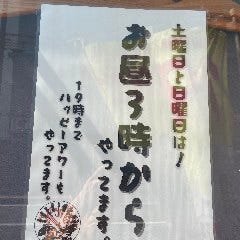 土曜日と日曜日は！
お昼3時から
やってます。
19時まで
ハッピーアワーも
やってます。